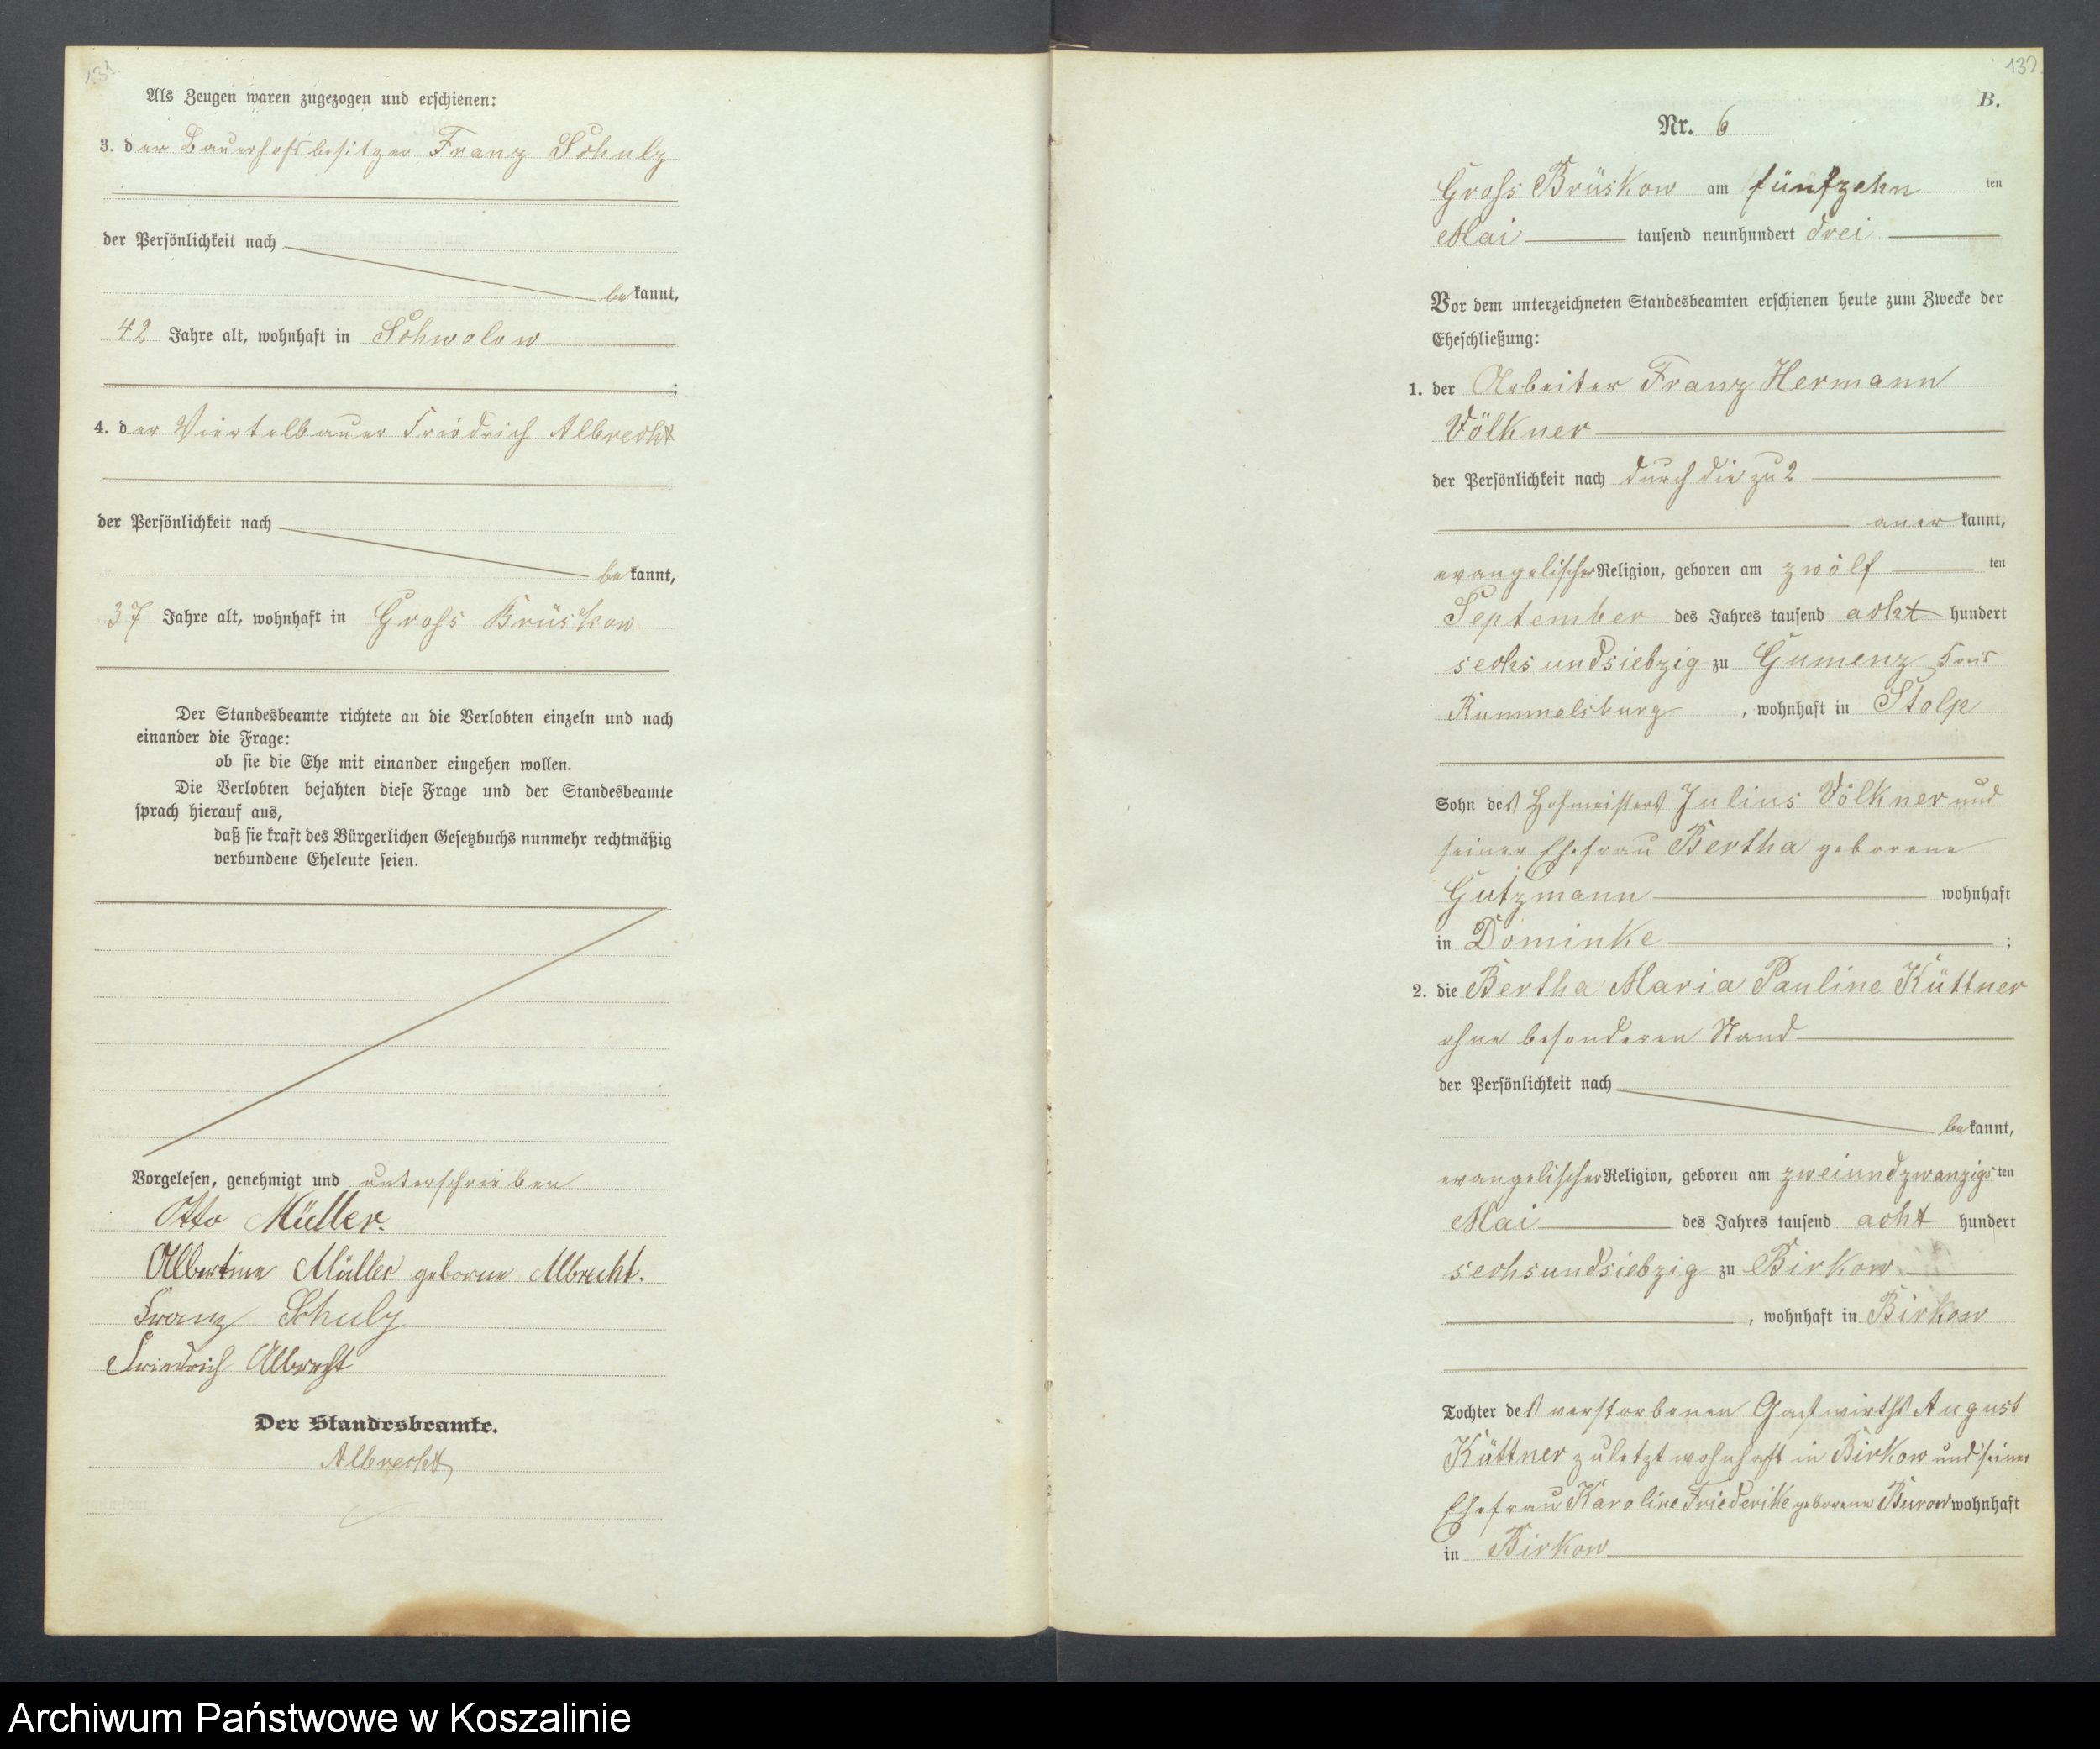 131
Als Zeugen waren zugezogen und erschienen:
3. der Bauerhofsbesitzer Franz Schulz
der Persönlichkeit nach
bekannt,
42 Jahre alt, wohnhaft in Schwolow
;
4. der Viertelbauer Friedrich Albrecht
der Persönlichkeit nach
bekannt,
37 Jahre alt, wohnhaft in Gross Brüskow
Der Standesbeamte richtete an die Verlobten einzeln und nach
einander die Frage:
ob sie die Ehe mit einander eingehen wollen.
Die Verlobten bejahten diese Frage und der Standesbeamte
sprach hierauf aus,
daß sie kraft des Bürgerlichen Gesetzbuchs nunmehr rechtmäßig
verbundene Eheleute seien.
Vorgelesen, genehmigt und unterschrieben
Otto Müller.
Albertine Müller geborne Albrecht.
Franz Schulz
Friedrich Albrecht
Der Standesbeamte.
Albrecht
132
B.
Nr. 6
Gross Brüskow am fünfzehn ten
Mai tausend neunhundert drei
Vor dem unterzeichneten Standesbeamten erschienen heute zum Zwecke der
Eheschließung:
1. der Arbeiter Franz Hermann
Völkner
der Persönlichkeit nach durch die zu 2
anerkannt,
evangelischer Religion, geboren am zwölf ten
September des Jahres tausend acht hundert
sechsundsiebzig zu Gumenz Kreis
Rummelsburg, wohnhaft in Stolp
Sohn des Hofmeisters Julius Völkner und
seiner Ehefrau Bertha geborene
Gutzmann wohnhaft
in Dominke ;
2. die Bertha Maria Pauline Küttner
ohne besonderen Stand
der Persönlichkeit nach
bekannt,
evangelischer Religion, geboren am zweiundzwanzigsten
Mai des Jahres tausend acht hundert
sechsundsiebzig zu Birkow
, wohnhaft in Birkow
Tochter des verstorbenen Gastwirths August
Küttner zuletzt wohnhaft in Birkow und seiner
Ehefrau Karoline Friederike geborene Burow wohnhaft
in Birkow
Archiwum Państwowe w Koszalinie